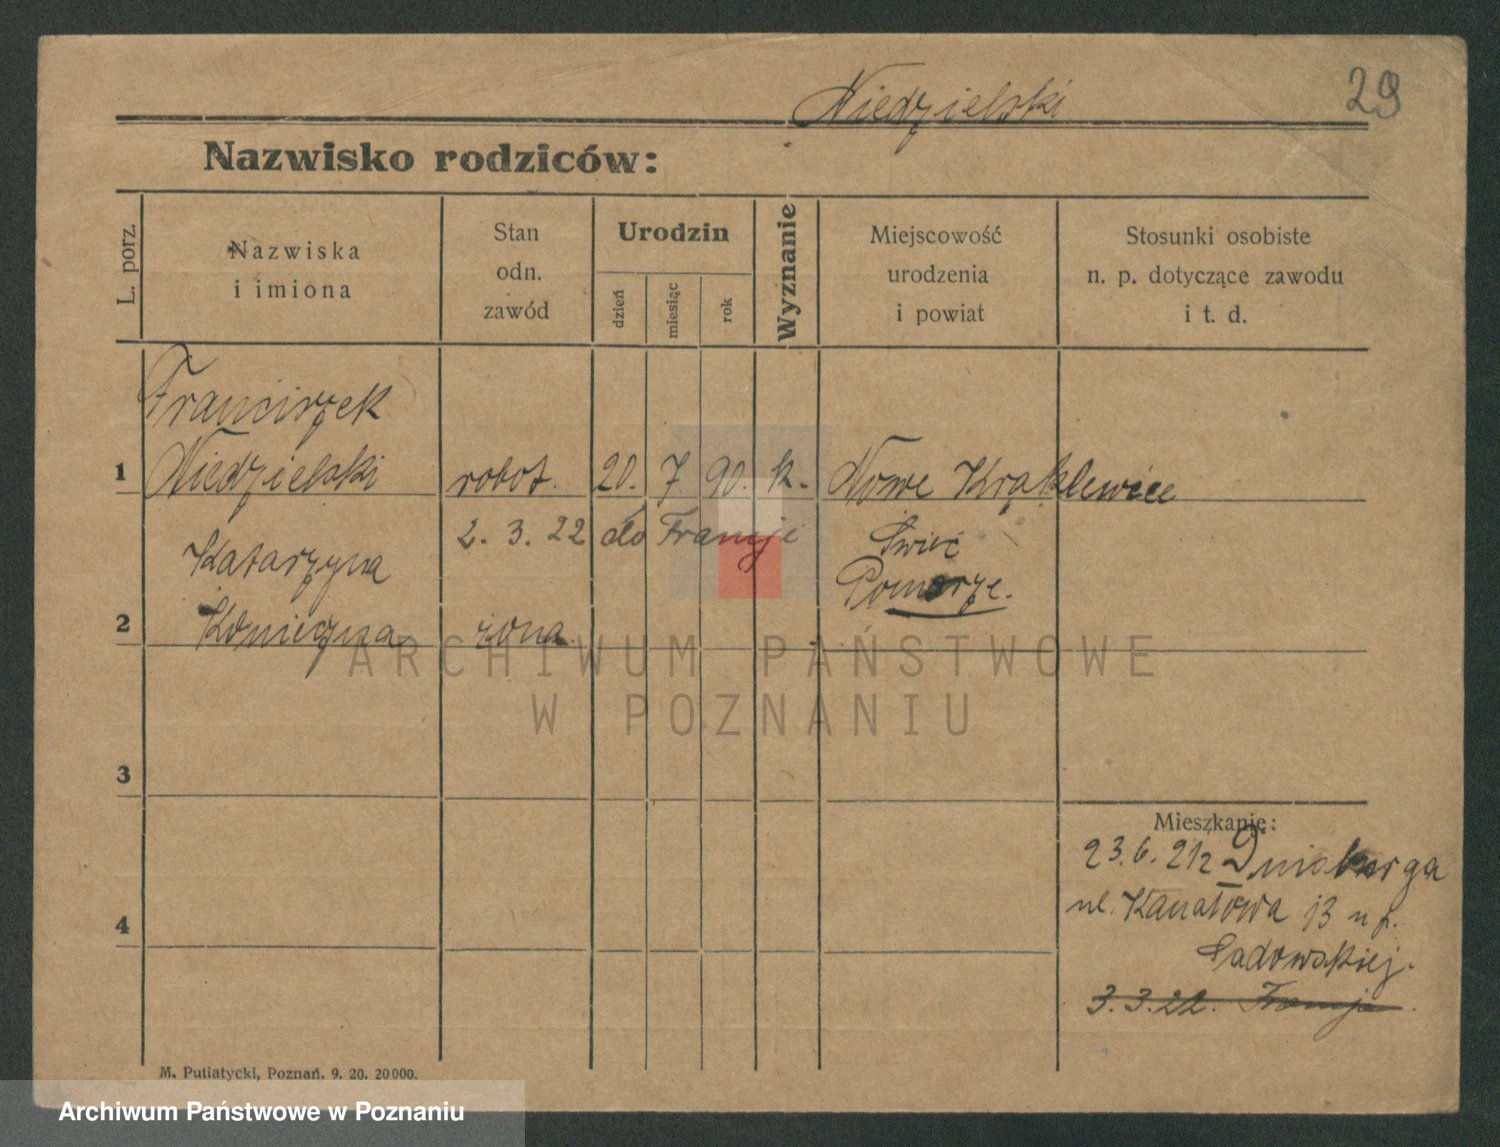 Niedzielski
29
Nazwisko rodziców:
L. porz.
Nazwiska
i imiona
Stan
odn.
zawód
Urodzin
dzień
miesiąc
rok
Wyznanie
Miejscowość
urodzenia
i powiat
Stosunki osobiste
n. p. dotyczące zawodu
i t. d.
Franciszek
1 Niedzielski robot. 20. 7. 90. k. Nowe Krąklewice
2. 3. 22 do Francji Świeć
Katarzyna Pomorze.
2 Konieczna żona
ARCHIWUM PAŃSTWOWE
W POZNANIU
3
Mieszkanie:
23.6.21 z
ul. Kanałowa 13 u p.
4
Sadowskiej.
3.3.22. Francja
M. Putiatycki, Poznań. 9. 20. 20000.
Archiwum Państwowe w Poznaniu